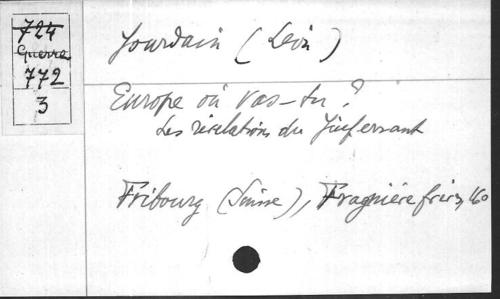 724
Guerre
772
3
Jourdain (Léon)
Europe où vas-tu ?
Les révélations du Juif errant
Fribourg (Suisse), Fragnière frères,